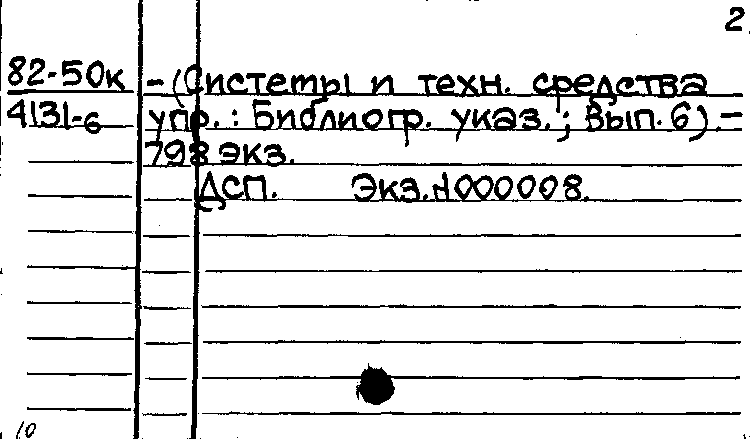 2
82-50к - (Системы и техн. средства
4131-6 упр.: Библиогр. указ.; Вып. 6).-
798 экз.
ДСП. Экз.N000008.
10